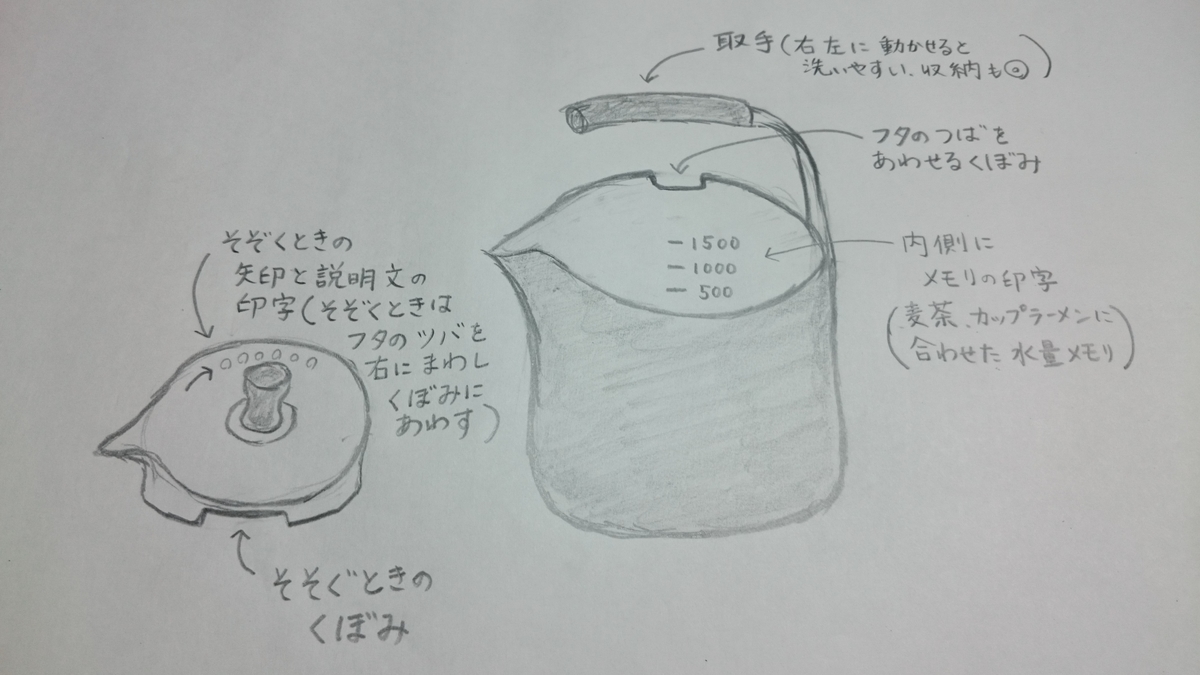 取手(右左に動かせると
洗いやすい、収納も◎)
フタのつばを
あわせるくぼみ
1500
1000
500
内側に
メモリの印字
(麦茶、カップラーメンに
合わせた水量メモリ)
そぞくときの
矢印と説明文の
印字(そぞくときは
フタのツバを
右にまわし
くぼみに
あわす)
そそぐときの
くぼみ